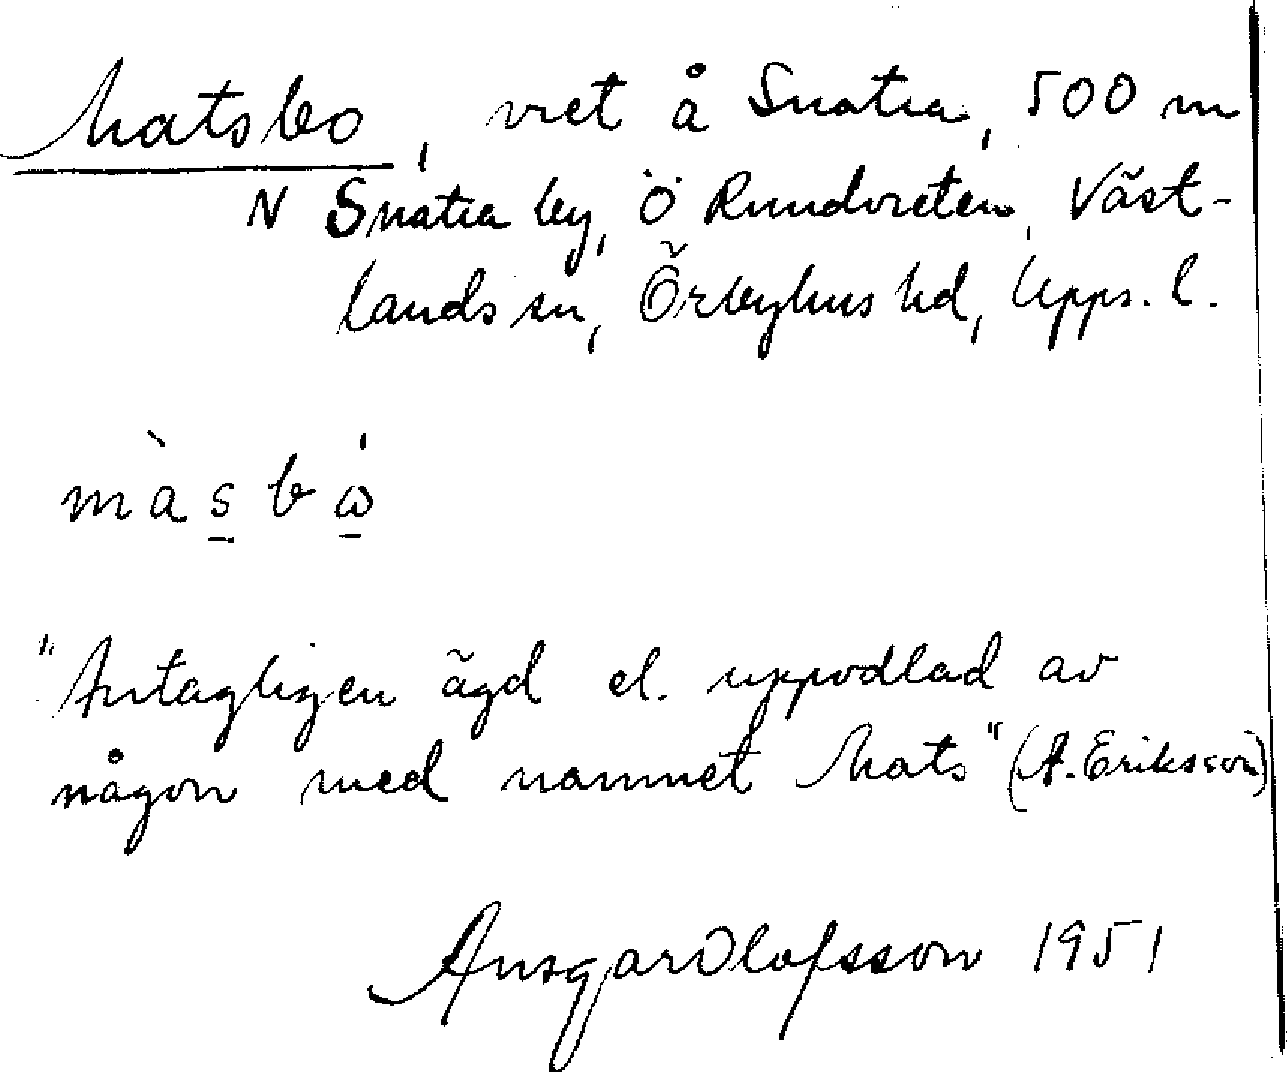 Matsbo, vret å Snatra, 500 m
N Snatra by, Ö Rundvreten, Väst-
lands sn, Örbyhus hd, Upps. l.
màsbω
"Antagligen ägd el. uppodlad av
någon med namnet Mats" (A. Eriksson)
Ansgar Olofsson 1951